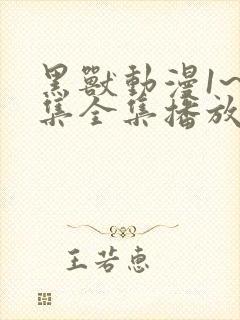 黑獸動漫1~
集全集播放
王若惠